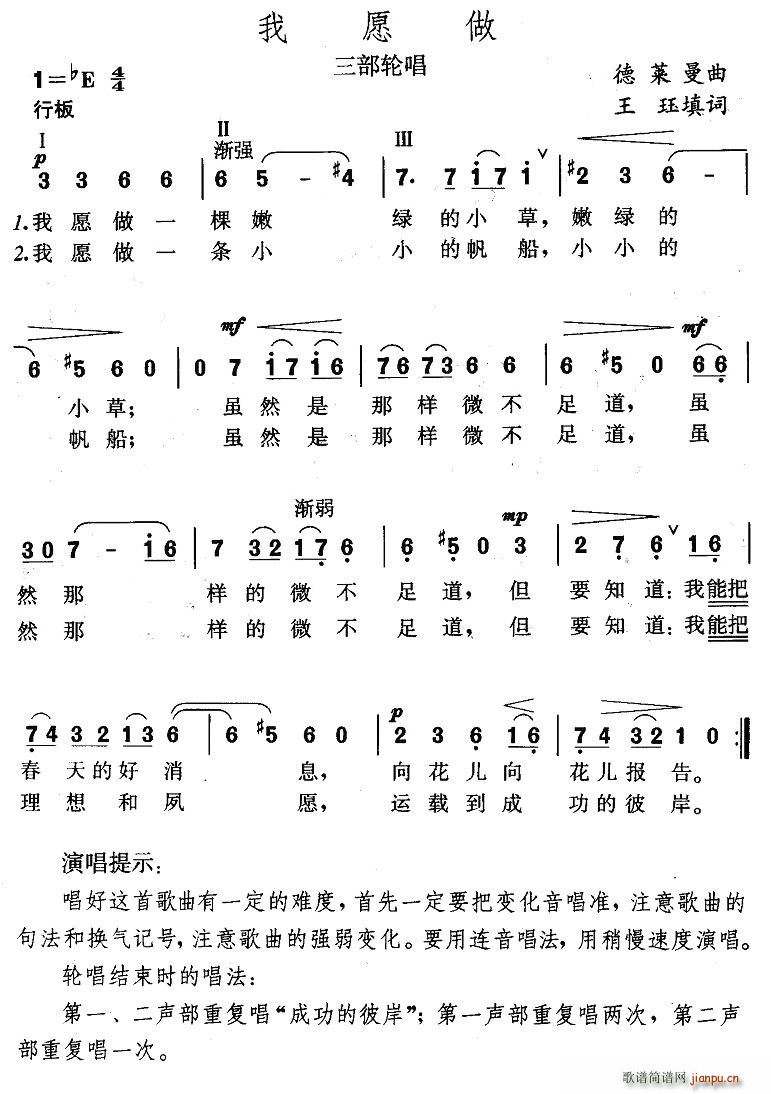 我愿做
三部轮唱
1=♭E 4/4
德莱曼曲
行板
王珏填词
I II III
p 渐强
3 3 6 6 | 6 5 - #4 | 7. 7 i 7 i ∨ | #2 3 6 - |
1.我愿做一棵嫩绿的小草,嫩绿的
2.我愿做一条小小的帆船,小小的
mf mf
6 #5 6 0 | 0 7 i 7 i 6 | 7 6 7 3 6 6 | 6 #5 0 6 6 |
小草; 虽然是那样微不足道, 虽
帆船; 虽然是那样微不足道, 虽
渐弱 mp
3 0 7 - i 6 | 7 3 2 1 7 6 | 6 #5 0 3 | 2 7 6 ∨ 1 6 |
然那样的微不足道,但要知道:我能把
然那样的微不足道,但要知道:我能把
p
7 4 3 2 1 3 6 | 6 #5 6 0 | 2 3 6 1 6 | 7 4 3 2 1 0 :||
春天的好消息,向花儿向花儿报告。
理想和夙愿,运载到成功的彼岸。
演唱提示:
唱好这首歌曲有一定的难度,首先一定要把变化音唱准,注意歌曲的
句法和换气记号,注意歌曲的强弱变化。要用连音唱法,用稍慢速度演唱。
轮唱结束时的唱法:
第一、二声部重复唱“成功的彼岸”;第一声部重复唱两次,第二声
部重复唱一次。
歌谱简谱网 jianpu.cn